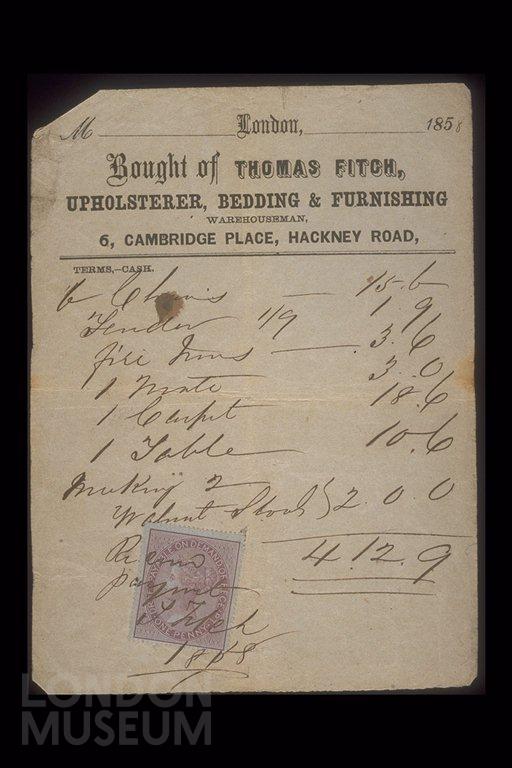 M London, 1858
Bought of THOMAS FITCH,
UPHOLSTERER, BEDDING & FURNISHING
WAREHOUSEMAN,
6, CAMBRIDGE PLACE, HACKNEY ROAD,
TERMS,—CASH.
6 Chairs — 15.6
Fender 1/9 1.9
fire Irons — 3.6
1 3.0
1 Carpet 18.6
1 Table 10.6
Making 2
Walnut } 2.0.0
4.12.9
PAYABLE ON DEMAND OR
ONE PENNY
T Fitch
1858
LONDON
MUSEUM